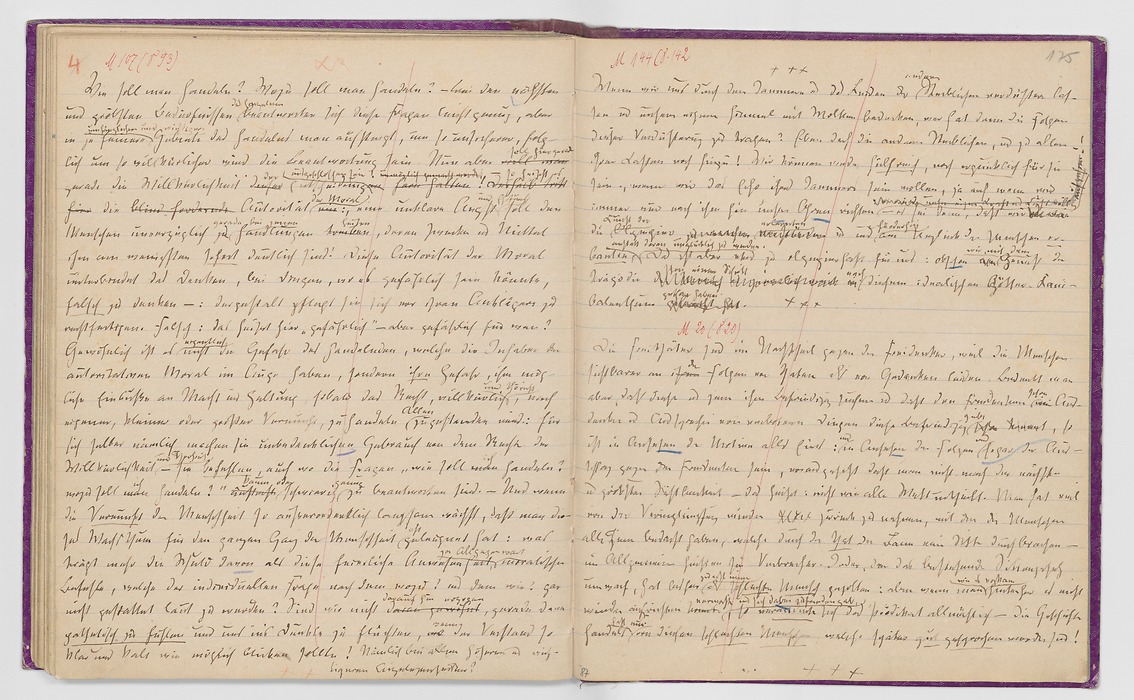 4 M 107 (S 93)
Wie soll man handeln? Wozu soll man handeln? – bei den nächsten
und gröbsten Bedürfnissen des Einzelnen beantworten sich diese Fragen leicht genug, aber
in je feinere umfänglichere und wichtigere Gebiete des Handelns man aufsteigt, um so unsicherer, folg-
lich um so willkürlicher wird die Beantwortung sein. Nun aber soll hier gerade
gerade die Willkürlichkeit der Entscheidung ausgeschlossen sein! – so heischt es
die Autorität der Moral: eine unklare Angst soll den
Menschen unverzüglich gerade bei jenen Handlungen leiten, deren Zwecke u Mittel
ihm am wenigsten sofort deutlich sind! Diese Autorität der Moral
unterbindet das Denken, bei Dingen, wo es gefährlich sein könnte,
falsch zu denken –: dergestalt pflegt sie sich vor ihren Anklägern zu
rechtfertigen. Falsch: das heisst hier „gefährlich“ – aber gefährlich für wen?
Gewöhnlich ist es eigentlich nicht die Gefahr des Handelnden, welche die Inhaber der
autoritativen Moral im Auge haben, sondern ihre Gefahr, ihre mög-
liche Einbusse an Macht und Geltung, sobald das Recht, willkürlich und thöricht, nach
eigener, kleiner oder grosser Vernunft, zu handeln Allen zugestanden wird: für
sich selber nämlich machen sie unbedenklichen Gebrauch von dem Rechte der
Willkürlichkeit und Thorheit – sie befehlen, auch wo die Fragen „wie soll ich handeln?
wozu soll ich handeln?“ kaum oder schwierig genug zu beantworten sind. – Und wenn
die Vernunft der Menschheit so ausserordentlich langsam wächst, dass man die-
ses Wachsthum für den ganzen Gang der Menschheit oft geleugnet hat: was
trägt mehr die Schuld davon als diese feierliche Anwesenheit, ja Allgegenwart moralischer
Befehle, welche der individuellen Frage nach dem wozu? und dem wie? gar
nicht gestattet laut zu werden? Sind wir nicht darauf hin erzogen, gerade dann
pathetisch zu fühlen und uns ins Dunkle zu flüchten, wenn der Verstand so
klar und kalt wie möglich blicken sollte? Nämlich bei allen höheren und wich-
tigeren Angelegenheiten?
M 144 (S. 142 175
+ + +
Wenn wir uns durch den Jammer u das Leiden der anderen Sterblichen verdüstern las-
sen und unseren eigenen Himmel mit Wolken bedecken, wer hat denn die Folgen
dieser Verdüsterung zu tragen? Eben doch die anderen Sterblichen, und zu allen
ihren Lasten noch hinzu! Wir können weder hülfreich, noch erquicklich für sie
sein, wenn wir das Echo ihres Jammers sein wollen, ja auch wenn wir
immer nur nach ihm hin unser Ohr richten – es sei denn, dass wir
die Kunst der Olympier erlernten und uns fürderhin am Unglück der Menschen er-
bauten, anstatt davon unglücklich zu werden. Das ist aber etwas zu olympierhaft für uns: obschon wir mit dem Genuss der
Tragödie schon einen Schritt nach diesem idealischen Götter-Kani-
balenthum gethan haben.
+ + +
M 20 (S 20)
Die Freithäter sind im Nachtheil gegen die Freidenker, weil die Menschen
sichtbarer an den Folgen von Thaten als von Gedanken leiden. Bedenkt man
aber, dass diese u jene ihre Befriedigung suchen und dass den Freidenkern schon ein Aus-
denken u Aussprechen von verbotenen Dingen diese Befriedigung giebt, so
ist in Ansehung der Motive alles Eins: und in Ansehung der Folgen wird sogar der Aus-
schlag gegen den Freidenker sein, vorausgesetzt dass man nicht nach der nächsten
u gröbsten Sichtbarkeit – das heisst: nicht wie alle Welt urtheilt. Man hat viel
von der Verunglimpfung wieder zurück zu nehmen, mit der die Menschen
alle Jene bedacht haben, welche durch die That den Bann einer Sitte durchbrachen –
im Allgemeinen heissen sie Verbrecher. Jeder, der das bestehende Sittengesetz
umwarf, hat bisher zuerst immer als schlechter Mensch gegolten: aber wenn man, wie es vorkam, nachher es nicht
wieder aufzurichten vermochte und sich damit zufrieden gab, so veränderte sich das Prädikat allmählich – die Geschichte
handelt fast nur von diesen schlechten Menschen, welche später gut gesprochen worden sind!
+ + +